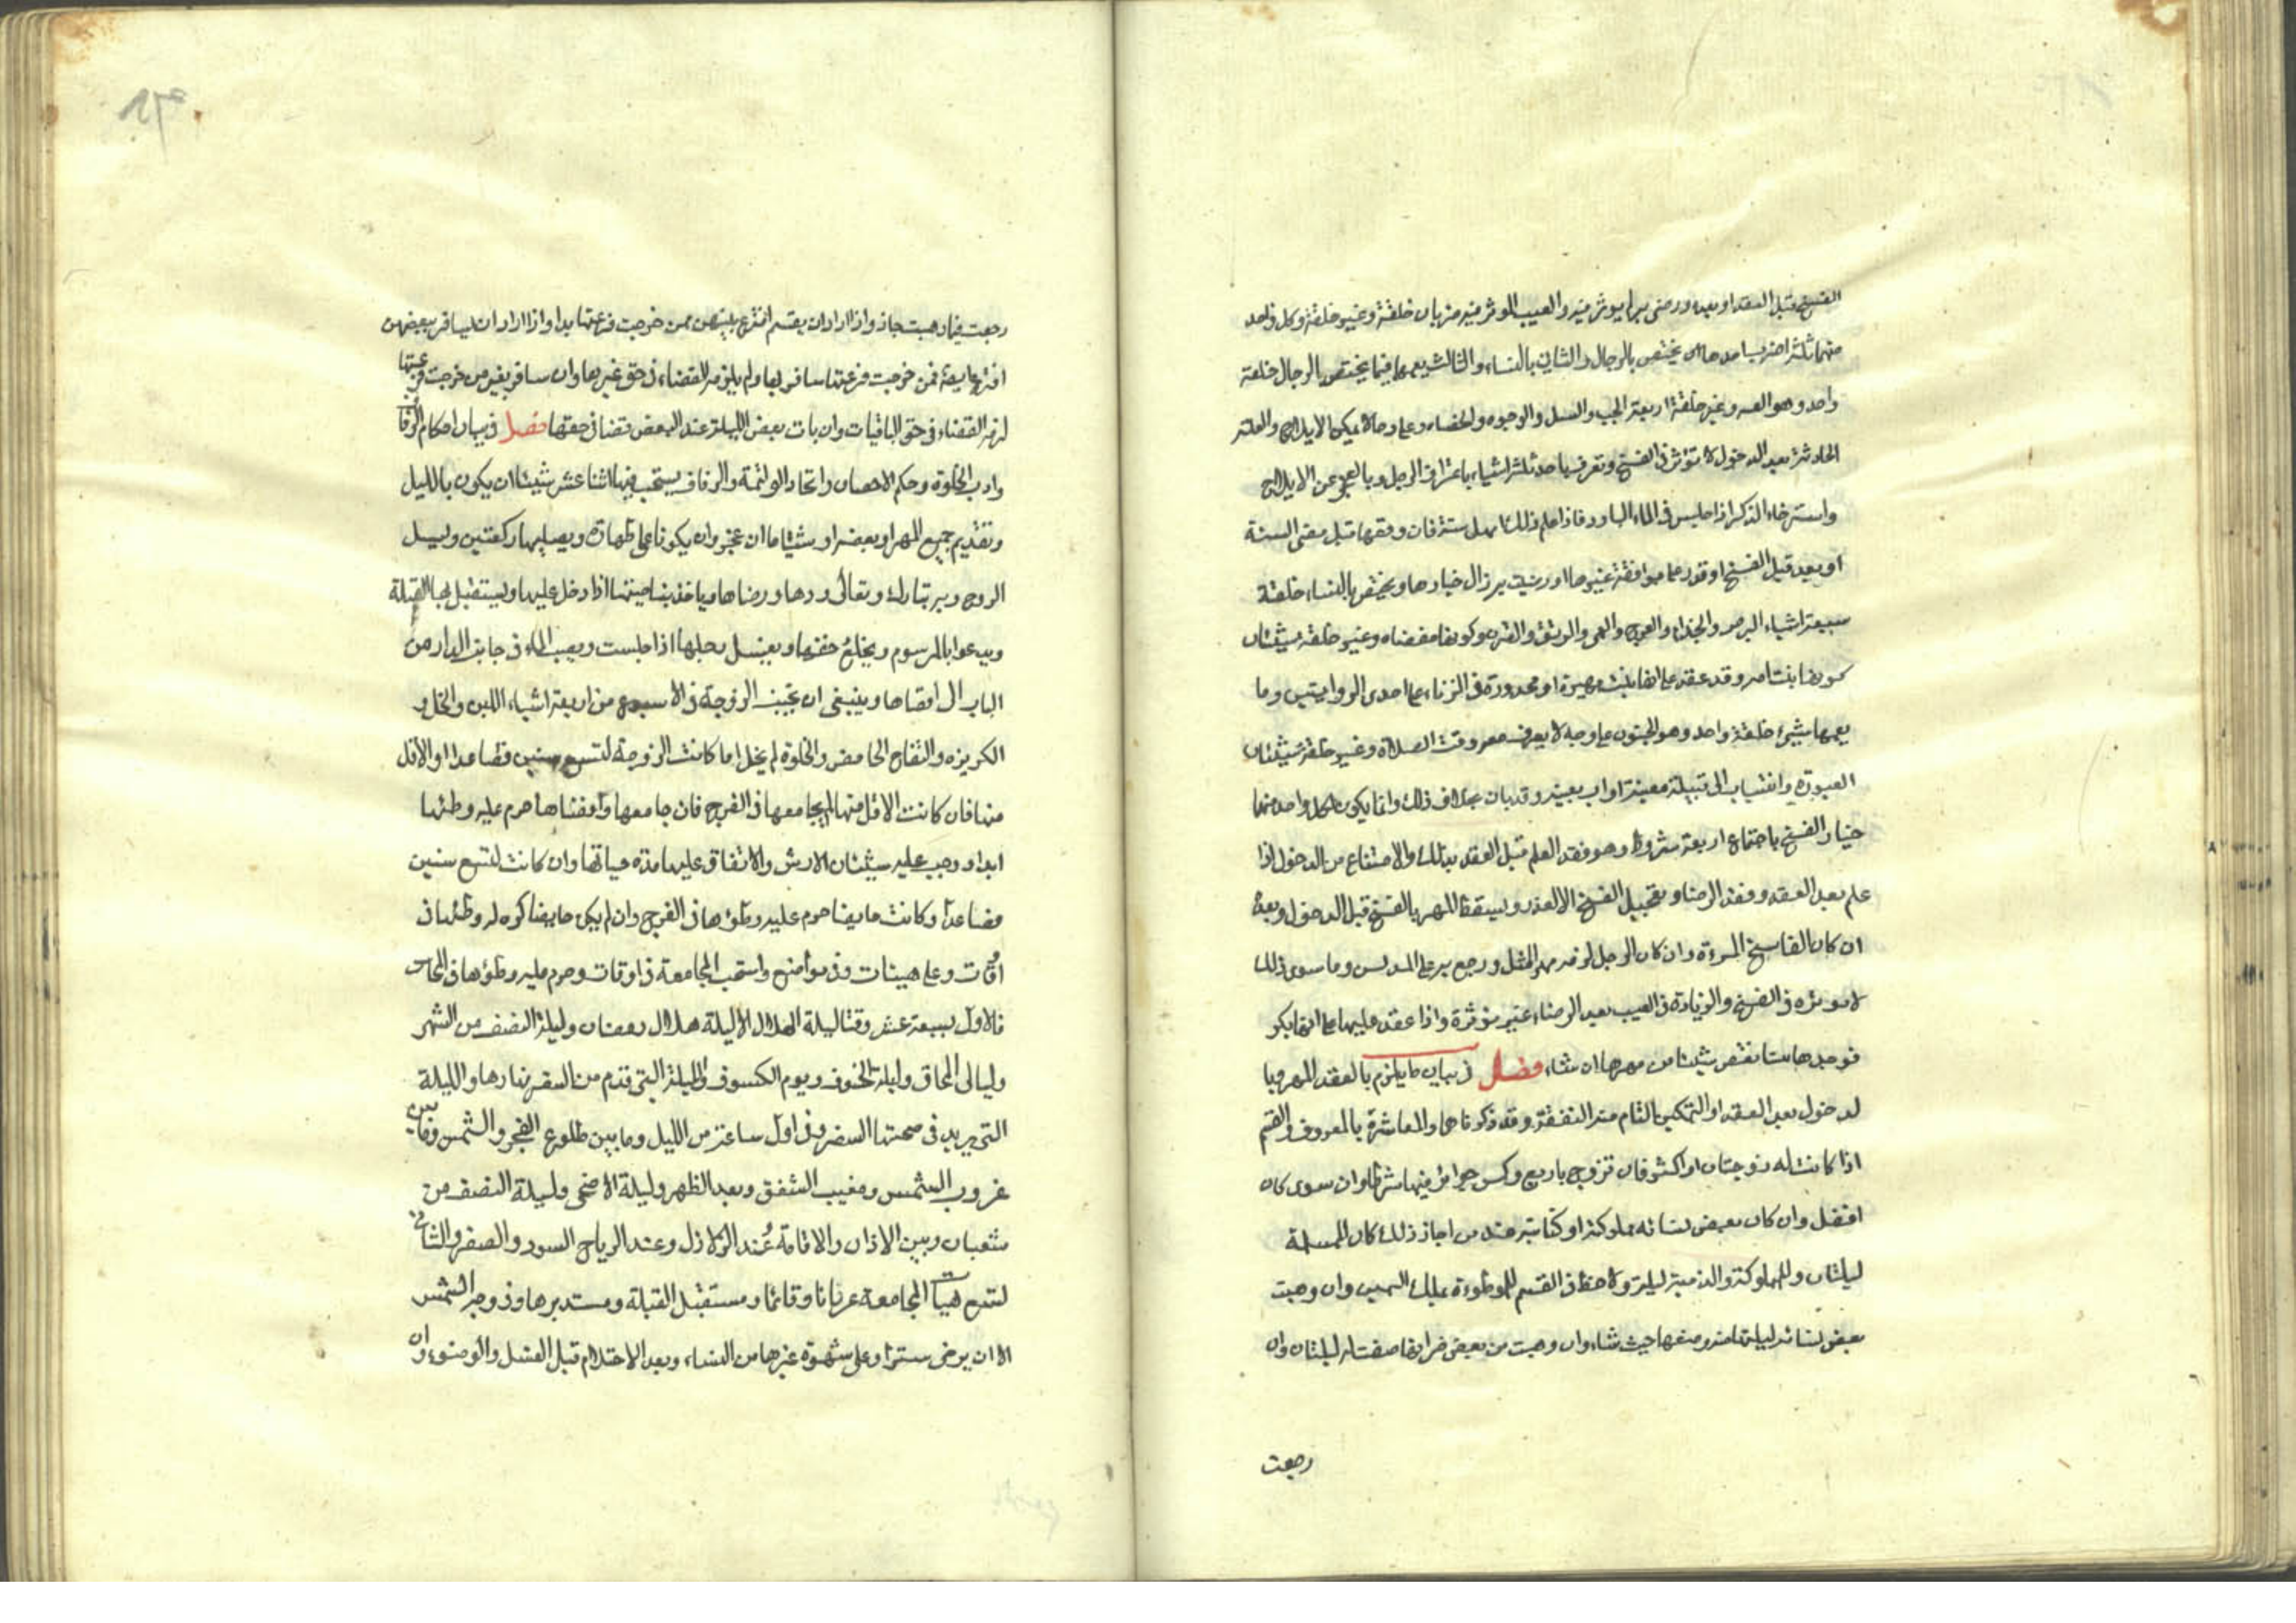 الفسخ قبل العقد او بعده ورضى به لم يوثر فيه والعيب الموثر فيه ضربان خلقة وغير خلقة وكل واحد
منهما ثلثة اضرب احدها يختص بالرجال والثاني بالنساء والثالث يعمهما فيما يختص بالرجال خلقة
واحد وهو العنه وغير خلقة اربعة الجب والسل والوجوه والخصاء وعلى وجه لا يمكن الايلاج والعنة
الحادثة بعد الدخول لا تؤثر في الفسخ وتعرف باحد ثلثة اشياء باعتراف الرجل وبالعجز عن الايلاج
واسترخاء الذكر اذا جلس في الماء البارد فاذا علم ذلك امهل سنة فان وقعها قبل مضى السنة
او بعده قبل الفسخ او قدر على موافقة غيرها او رضيت به زال خيارها ويختص بالنساء خلقة
سبعة اشياء البرص والجذام والعرج والعمى والرتق والقرن وكونها مفضاه وغير خلقة شيئان
كونها بنت امه وقد عقد على انها بنت مهيرة او محدودة في الزناء على احدى الروايتين وما
يعمهما شيئ خلقة واحد وهو الجنون على وجه لا يعرف معه وقت الصلاة وغير خلقة شيئان
العبودة وانتساب الى قبيلة معينة او اب بعينه وقد بان بخلاف ذلك وانما يكون لكل واحد منهما
خيار الفسخ باجتماع اربعة شروط وهو فقد العلم قبل العقد بذلك والامتناع من الدخول اذا
علم بعد العقد وفقد الرضا وتعجيل الفسخ الا لعذر ويسقط المهر بالفسخ قبل الدخول وبعده
ان كان الفاسخ المرءة وان كان الرجل لزمه مهر المثل ورجع به على المدلس وما سوى ذلك
لا يوثره في الفسخ والزيادة في العيب بعد الرضاء غير مؤثرة واذا عقد عليها على انها بكر
فوجدها ثيبا نقص شيئا من مهرها ان شاء فصل في بيان ما يلزم بالعقد المهر وبا
لدخول بعد العقد او التمكين التام منه النفقة وقد ذكرناها والمعاشرة بالمعروف والقسم
اذا كانت له زوجتان او اكثر فان تزوج باربع وكن حرائر فيها شرط وان سوى كان
افضل وان كان بعض نسائه مملوكة او كتابية عند من اجاز ذلك كان للمسلمة
ليلتان وللمملوكة والذمية ليلة ولا حظ في القسم للموطوءة بملك اليمين وان وهبت
بعض نسائه ليلتها منه وضعها حيث شاء وان وهبت من بعض ضراتها صفت له ليلتان وان
رجعت
رجعت فيما وهبت جاز واذا اراد ان يقسم اقترع بينهن فمن خرجت قرعتها بدا واذا اراد ان يسافر ببعضهن
اقترع ايضا فمن خرجت قرعتها سافر بها ولم يلزمه القضاء في حق غيرها وان سافر بغير من خرجت قرعتها
لزمه القضاء في حق الباقيات وان بات بعض الليلة عند البعض قضا في حقها فصل في بيان احكام الزفا
واداب الخلوة وحكم الاحصان واتخاذ الوليمة والزفاف يستحب فيها اثنا عشر شيئا ان يكون بالليل
وتقديم جميع المهر او بعضه او شيئا ما ان عجز وان يكونا على طهارة ويصليها ركعتين وليسل
الزوج ربه تبارك وتعالى ودها ورضاها وياخذ بناصيتها اذا دخل عليها ويستقبل بها القبلة
ويدعوا بالمرسوم ويخلع خفها ويغسل رجلها اذا جلست ويصب الماء في جانب الدار من
الباب الى اقصاها وينبغي ان تجتنب الزوجة في الاسبوع من اربعة اشياء اللبن والخل و
الكزبره والتفاح الحامض والخلوة لم يخل اما كانت الزوجة لتسع سنين فصاعدا او الاقل
منها فان كانت الاقل منها لم يجامعها في الفرج فان جامعها وافضاها حرم عليه وطئها
ابدا ووجب عليه شيئان الارش والانفاق عليها مدة حياتها وان كانت لتسع سنين
فصاعدا وكانت حايضا حرم عليه وطؤها في الفرج وان لم يكن حايضا كره له وطئها في
اوقات وعلى هيئات وفي مواضع واستحب المجامعة في اوقات وحرم عليه وطؤها في المحاش
فالاول سبعة عشر وقتا ليلة الهلال الا ليلة هلال رمضان وليلة النصف من الشهر
وليالى المحاق وليلة الخسوف ويوم الكسوف والليلة التي قدم من السفر نهارها والليلة
التي يريد في صبحتها السفر وفي اول ساعة من الليل وما بين طلوع الفجر والشمس وما بين
غروب الشمس ومغيب الشفق وبعد الظهر وليلة الاضحى وليلة النصف من
شعبان وبين الاذان والاقامة وعند الزلازل وعند الرياح السود والصفر والثاني
لتسع هيئات المجامعة عريانا وقائما ومستقبل القبلة ومستدبرها وفي وجه الشمس
الا ان يرخى سترا وعلى شهوة غيرها من النساء وبعد الاحتلام قبل الغسل والوضوء وان